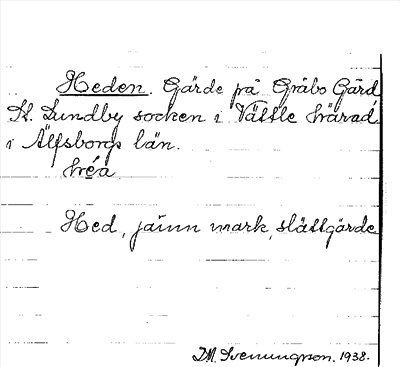 Heden. Gärde på Gråbo Gård
St. Lundby socken i Vättle härad
i Älfsborgs län.
héa
Hed, jämn mark, slättgärde
J.M. Svenungson. 1938.